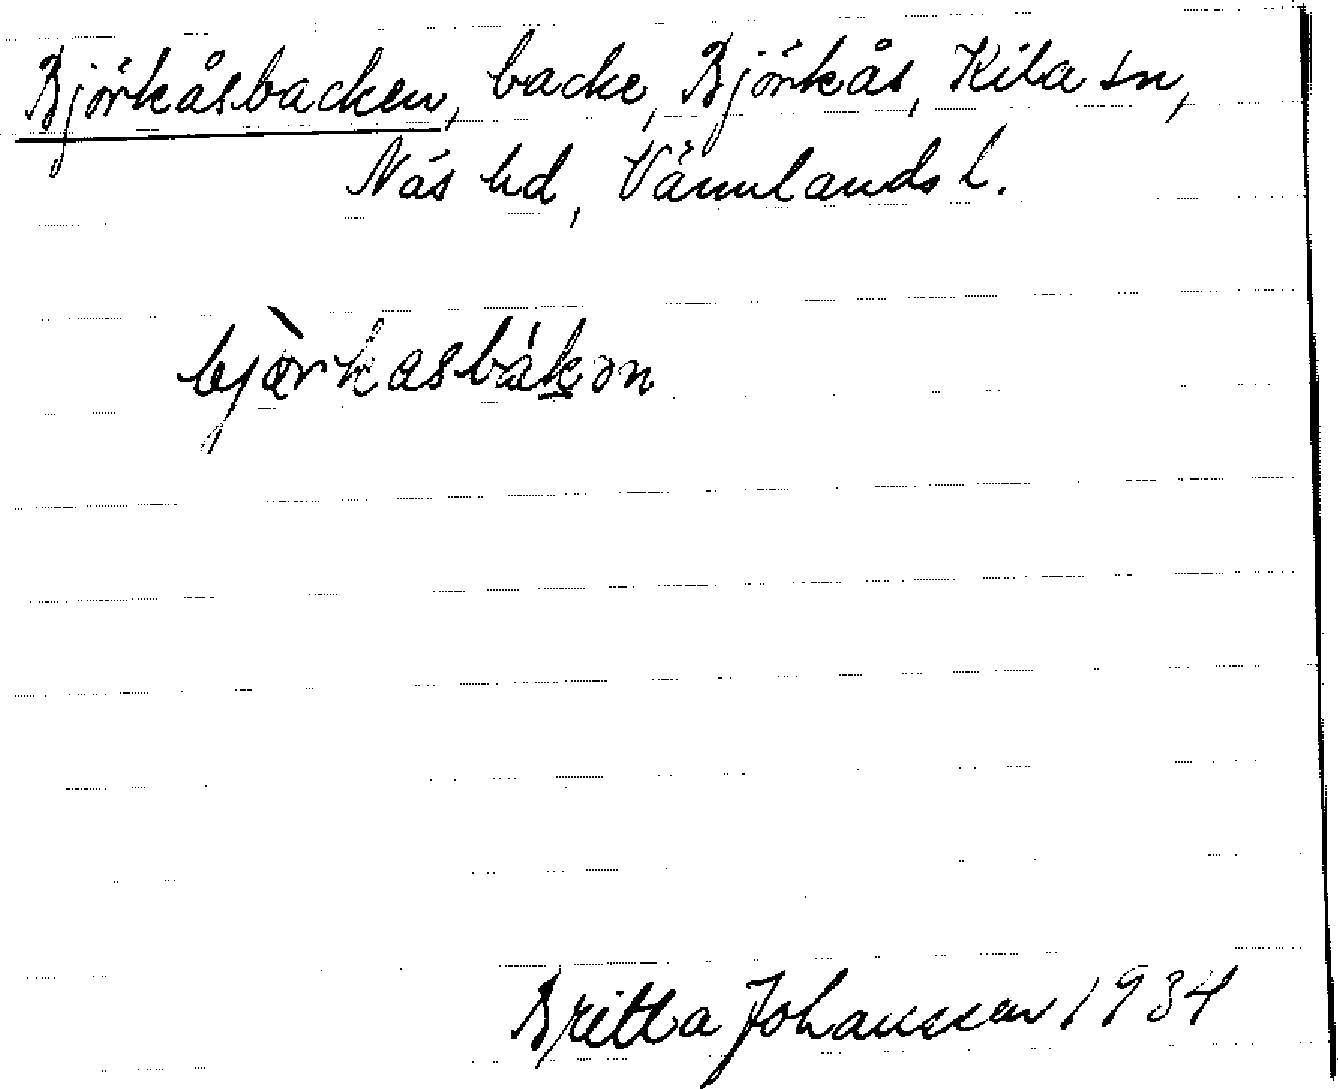 Björkåsbacken, backe, Björkås, Kila sn,
Näs hd, Värmlands l.
bjö̀rkasbák̠ən
Britta Johansson 1934